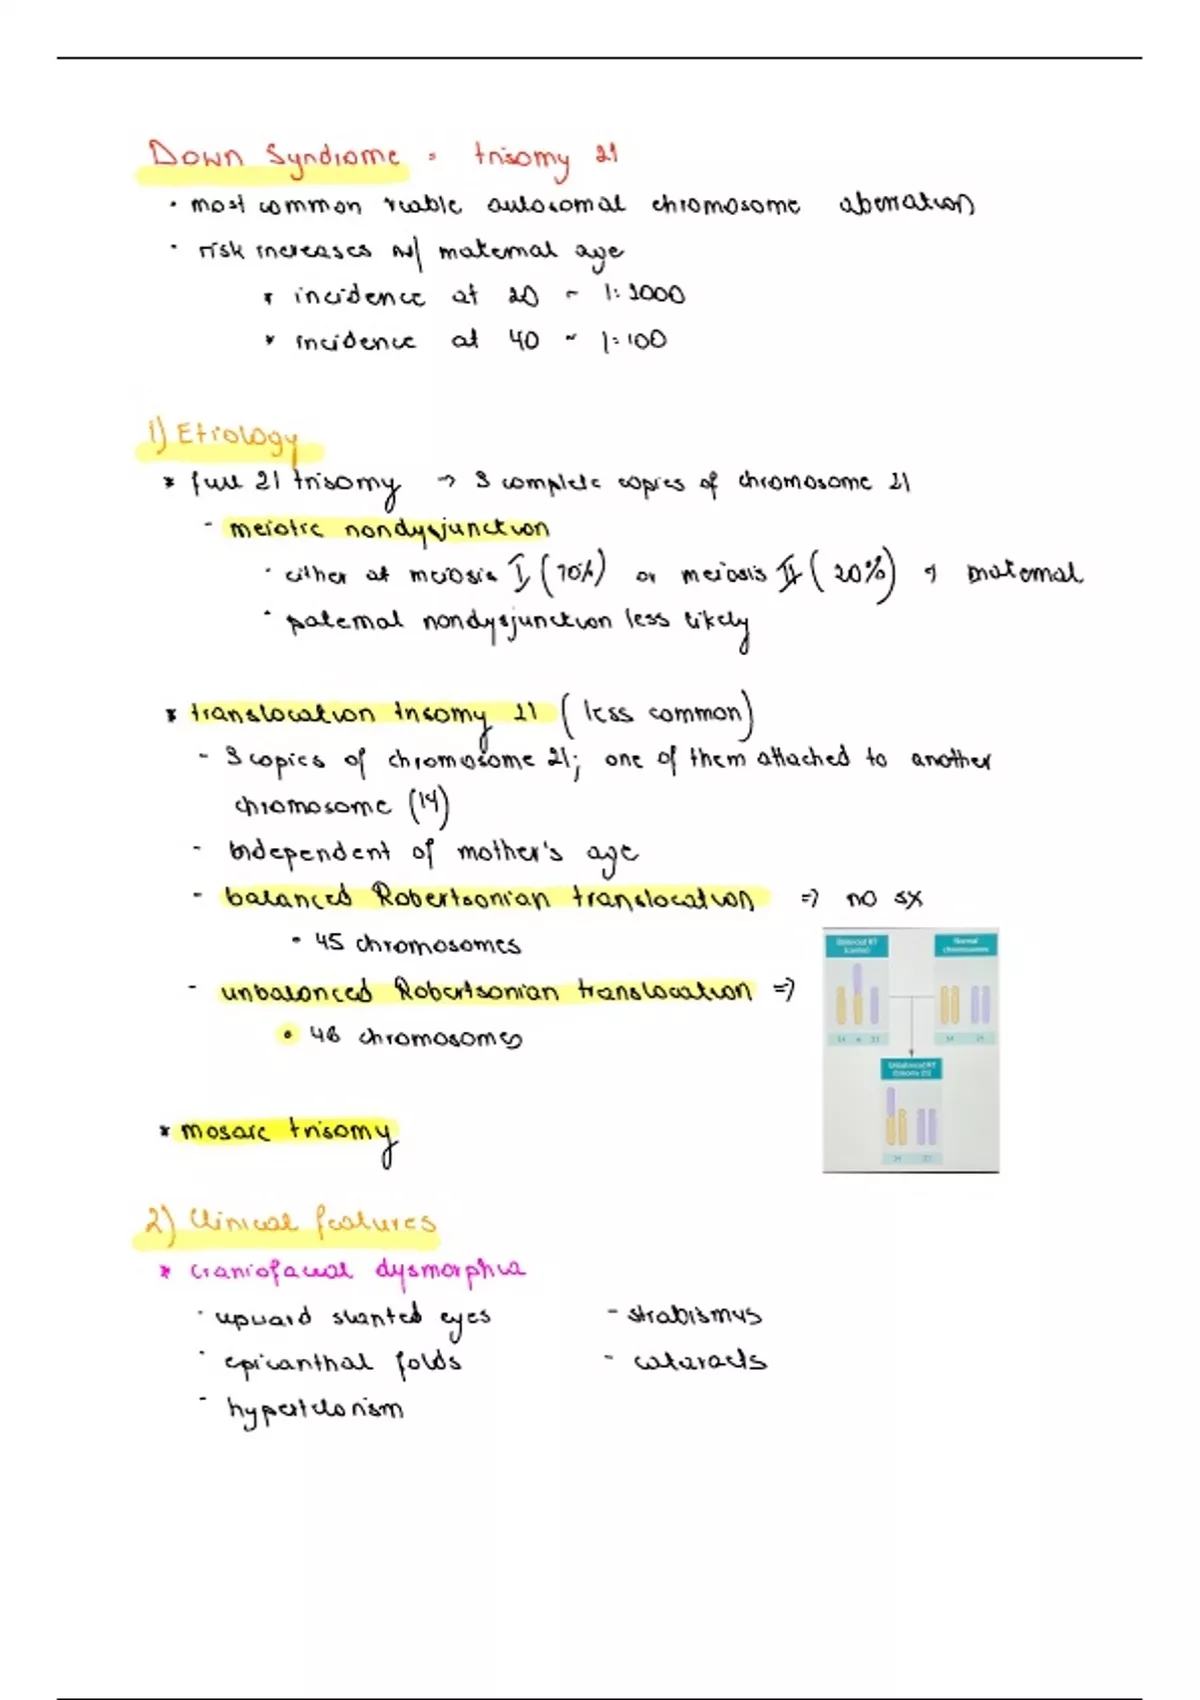 Down Syndrome = trisomy 21
• most common viable autosomal chromosome aberration
• risk increases w/ maternal age
* incidence at 20 ~ 1:2000
* incidence at 40 ~ 1:100
1) Etiology
* full 21 trisomy → 3 complete copies of chromosome 21
- meiotic nondysjunction
• either at meiosis I (70%) or meiosis II (20%) maternal
• paternal nondysjunction less likely
* translocation trisomy 21 (less common)
- 3 copies of chromosome 21; one of them attached to another
chromosome (14)
- independent of mother's age
- balanced Robertsonian translocation => no sx
• 45 chromosomes
- unbalanced Robertsonian translocation =>
• 46 chromosomes
Balanced RT
(carrier)
Normal
chromosomes
14 21
14 21
Unbalanced RT
(trisomy 21)
14 21
* mosaic trisomy
2) Clinical features
* craniofacial dysmorphia
- upward slanted eyes - strabismus
- epicanthal folds - cataracts
- hypertelorism